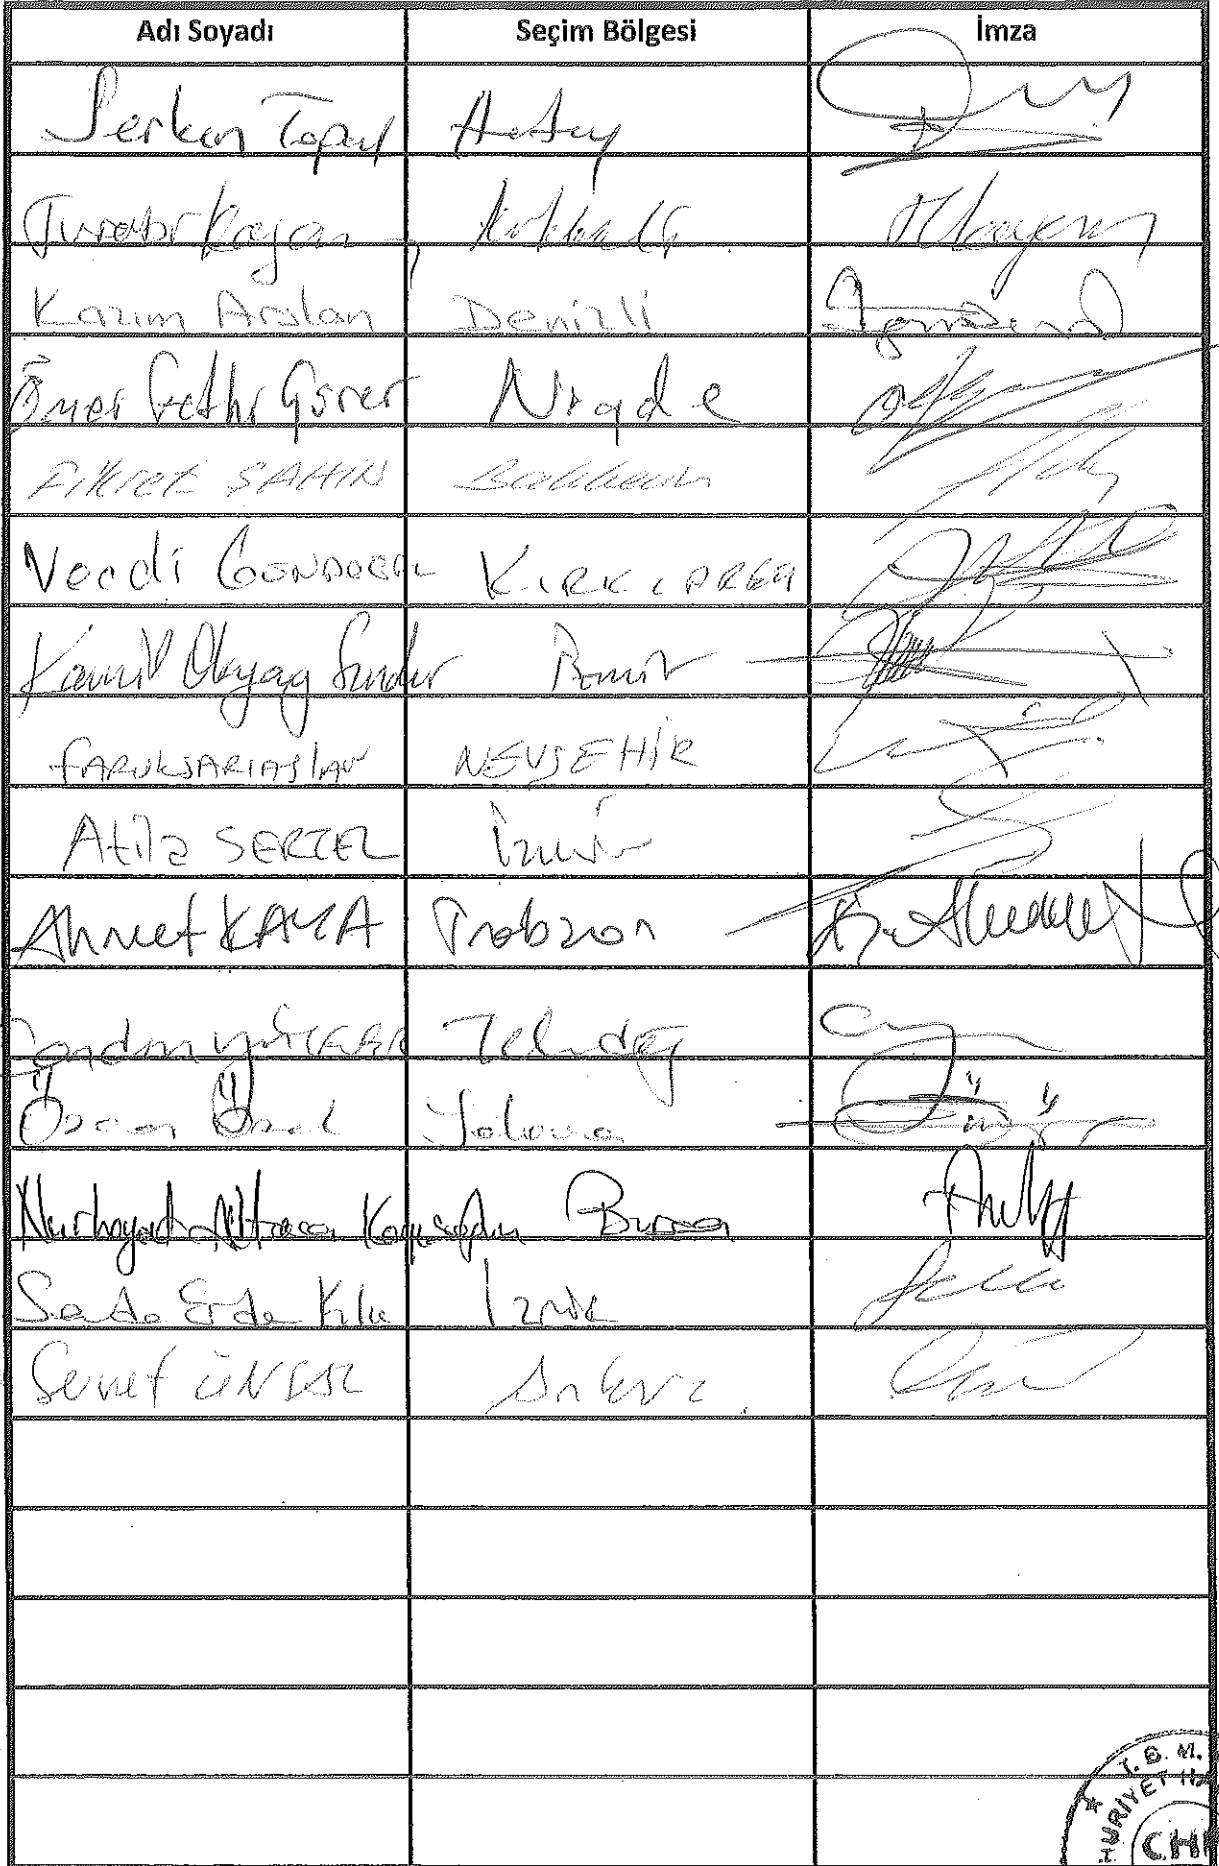 Adı Soyadı Seçim Bölgesi İmza
Serkan Topal Hatay
Turabi Kayan Kırklareli
Kazım Arslan Denizli
Ömer Fethi Gürer Niğde
Fikret ŞAHİN Balıkesir
Vecdi GÜNDOĞDU KIRKLARELİ
Kamil Okyay Sındır İzmir
FARUK SARIASLAN NEVŞEHİR
Atila SERTEL İzmir
Ahmet KAYA Trabzon
Candan YÜCEER Tekirdağ
Özcan Özel Yalova
Nurhayat Altaca Kayışoğlu Bursa
Sevda Erdan Kılıç İzmir
Servet ÜNSAL Ankara
T. B. M.
CHP